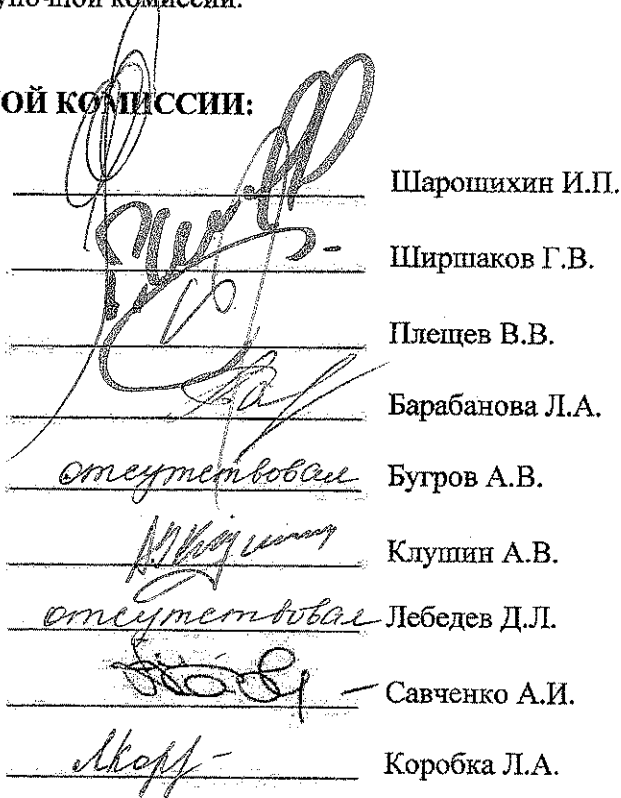 комиссии.
ОЙ КОМИССИИ:
Шарошихин И.П.
Ширшаков Г.В.
Плещев В.В.
Барабанова Л.А.
отсутствовал Бугров А.В.
Клушин А.В.
отсутствовал Лебедев Д.Л.
Савченко А.И.
Коробка Л.А.